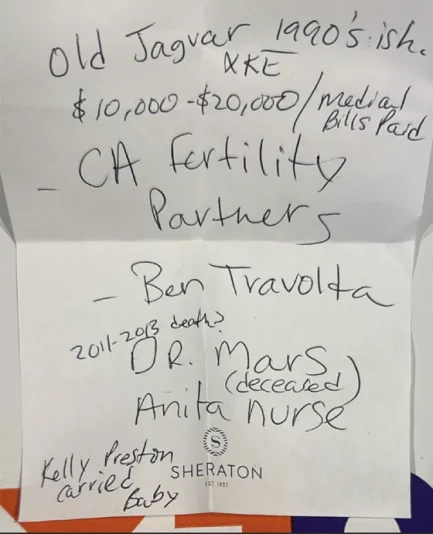 Old Jaguar 1990's.ish.
XKE
$10,000-$20,000/Medial
Bills Paid
- CA Fertility
Partners
- Ben Travolta
2011-2013 death?
DR. Mars
(deceased)
Anita nurse
Kelly Preston
carried
Baby
S
SHERATON
EST. 1937